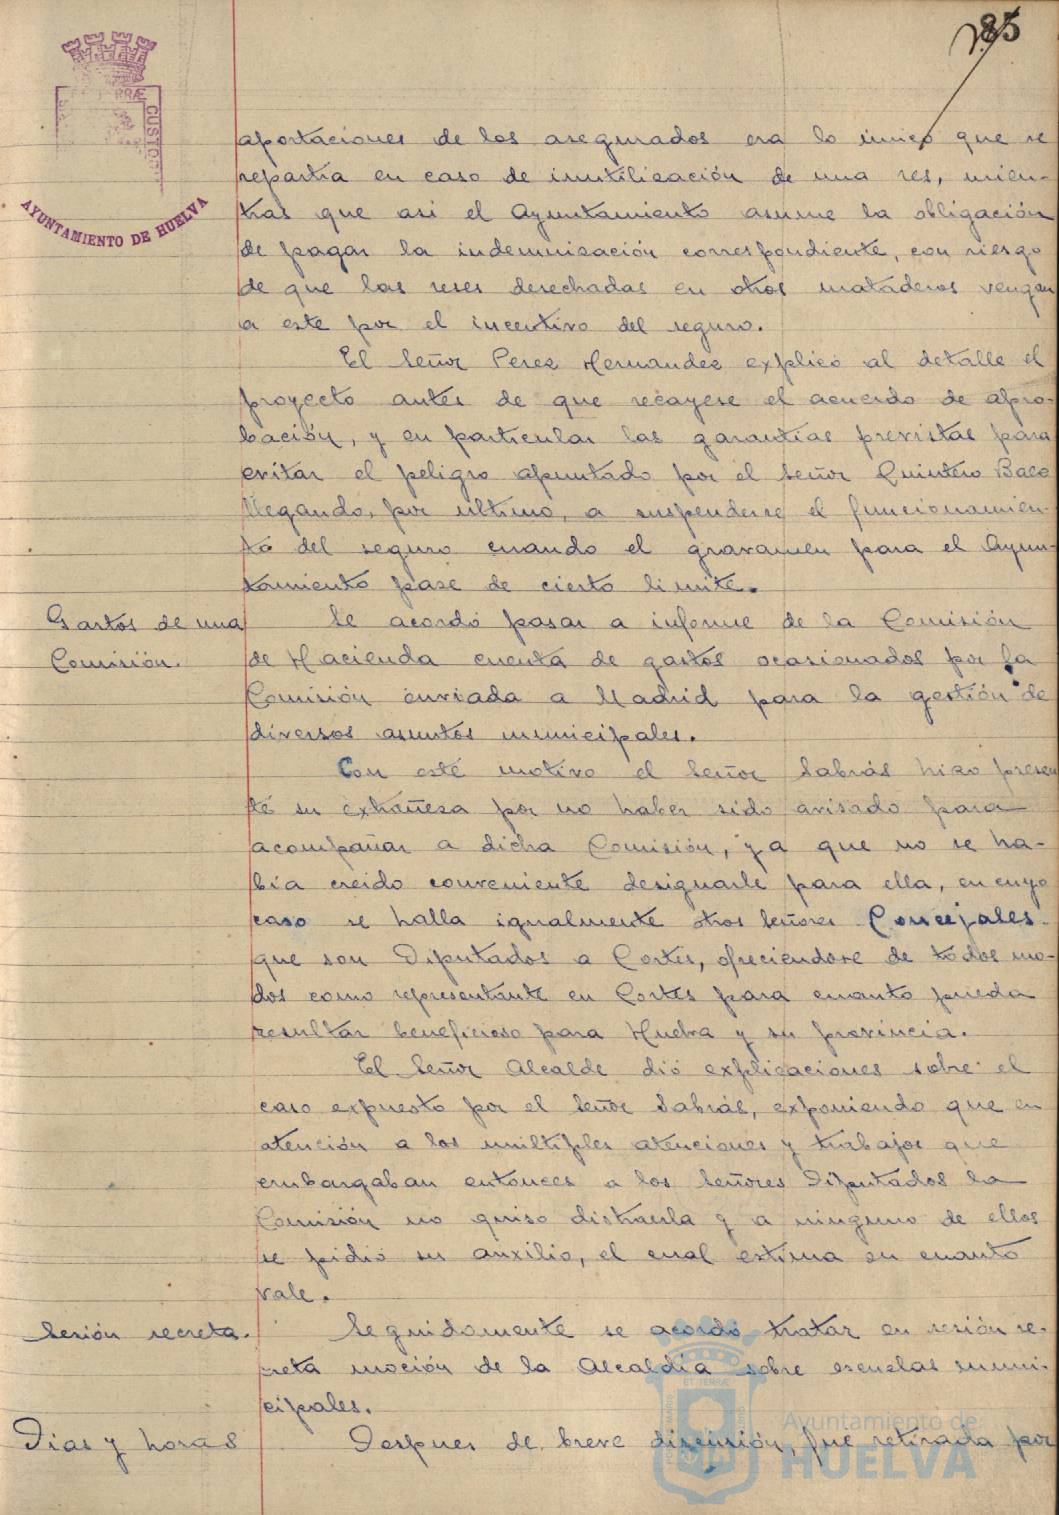 85
aportaciones de los asegurados era lo único que se
repartía en caso de inutilización de una res, mien-
tras que asi el Ayuntamiento asume la obligación
de pagar la indemnización correspondiente, con riesgo
de que las reses desechadas en otros mataderos vengan
a este por el incentivo del seguro.
El Señor Perez Hernandez explicó al detalle el
proyecto antes de que recayese el acuerdo de apro-
bación, y en particular las garantías previstas para
evitar el peligro apuntado por el Señor Quintero Baez
llegando, por último, a suspenderse el funcionamien-
to del seguro cuando el gravamen para el Ayun-
tamiento pase de cierto limite.
Gastos de una
Comisión.
Se acordó pasar a informe de la Comisión
de Hacienda cuenta de gastos ocasionados por la
Comisión enviada a Madrid para la gestión de
diversos asuntos municipales.
Con este motivo el Señor Sabrás hizo presen
te su extrañeza por no haber sido avisado para
acompañar a dicha Comisión, ya que no se ha-
bía creido conveniente designarle para ella, en cuyo
caso se halla igualmente otros Señores Concejales
que son Diputados a Cortes, ofreciendose de todos mo-
dos como representante en Cortes para cuanto pueda
resultar beneficioso para Huelva y su provincia.
El Señor Alcalde dió explicaciones sobre el
caso expuesto por el Señor Sabrás, exponiendo que en
atención a los multiples atenciones y trabajos que
embargaban entonces a los Señores Diputados la
Comisión no quiso distraerla y a ninguno de ellos
se pidió su auxilio, el cual estima en cuanto
vale.
Sesión secreta.
Seguidamente se acordó tratar en sesión se-
creta moción de la Alcaldía sobre escuelas muni-
cipales.
Dias y horas
Despues de breve discusión, fue retirada por
AYUNTAMIENTO DE HUELVA
CUSTODIA
Ayuntamiento de
HUELVA